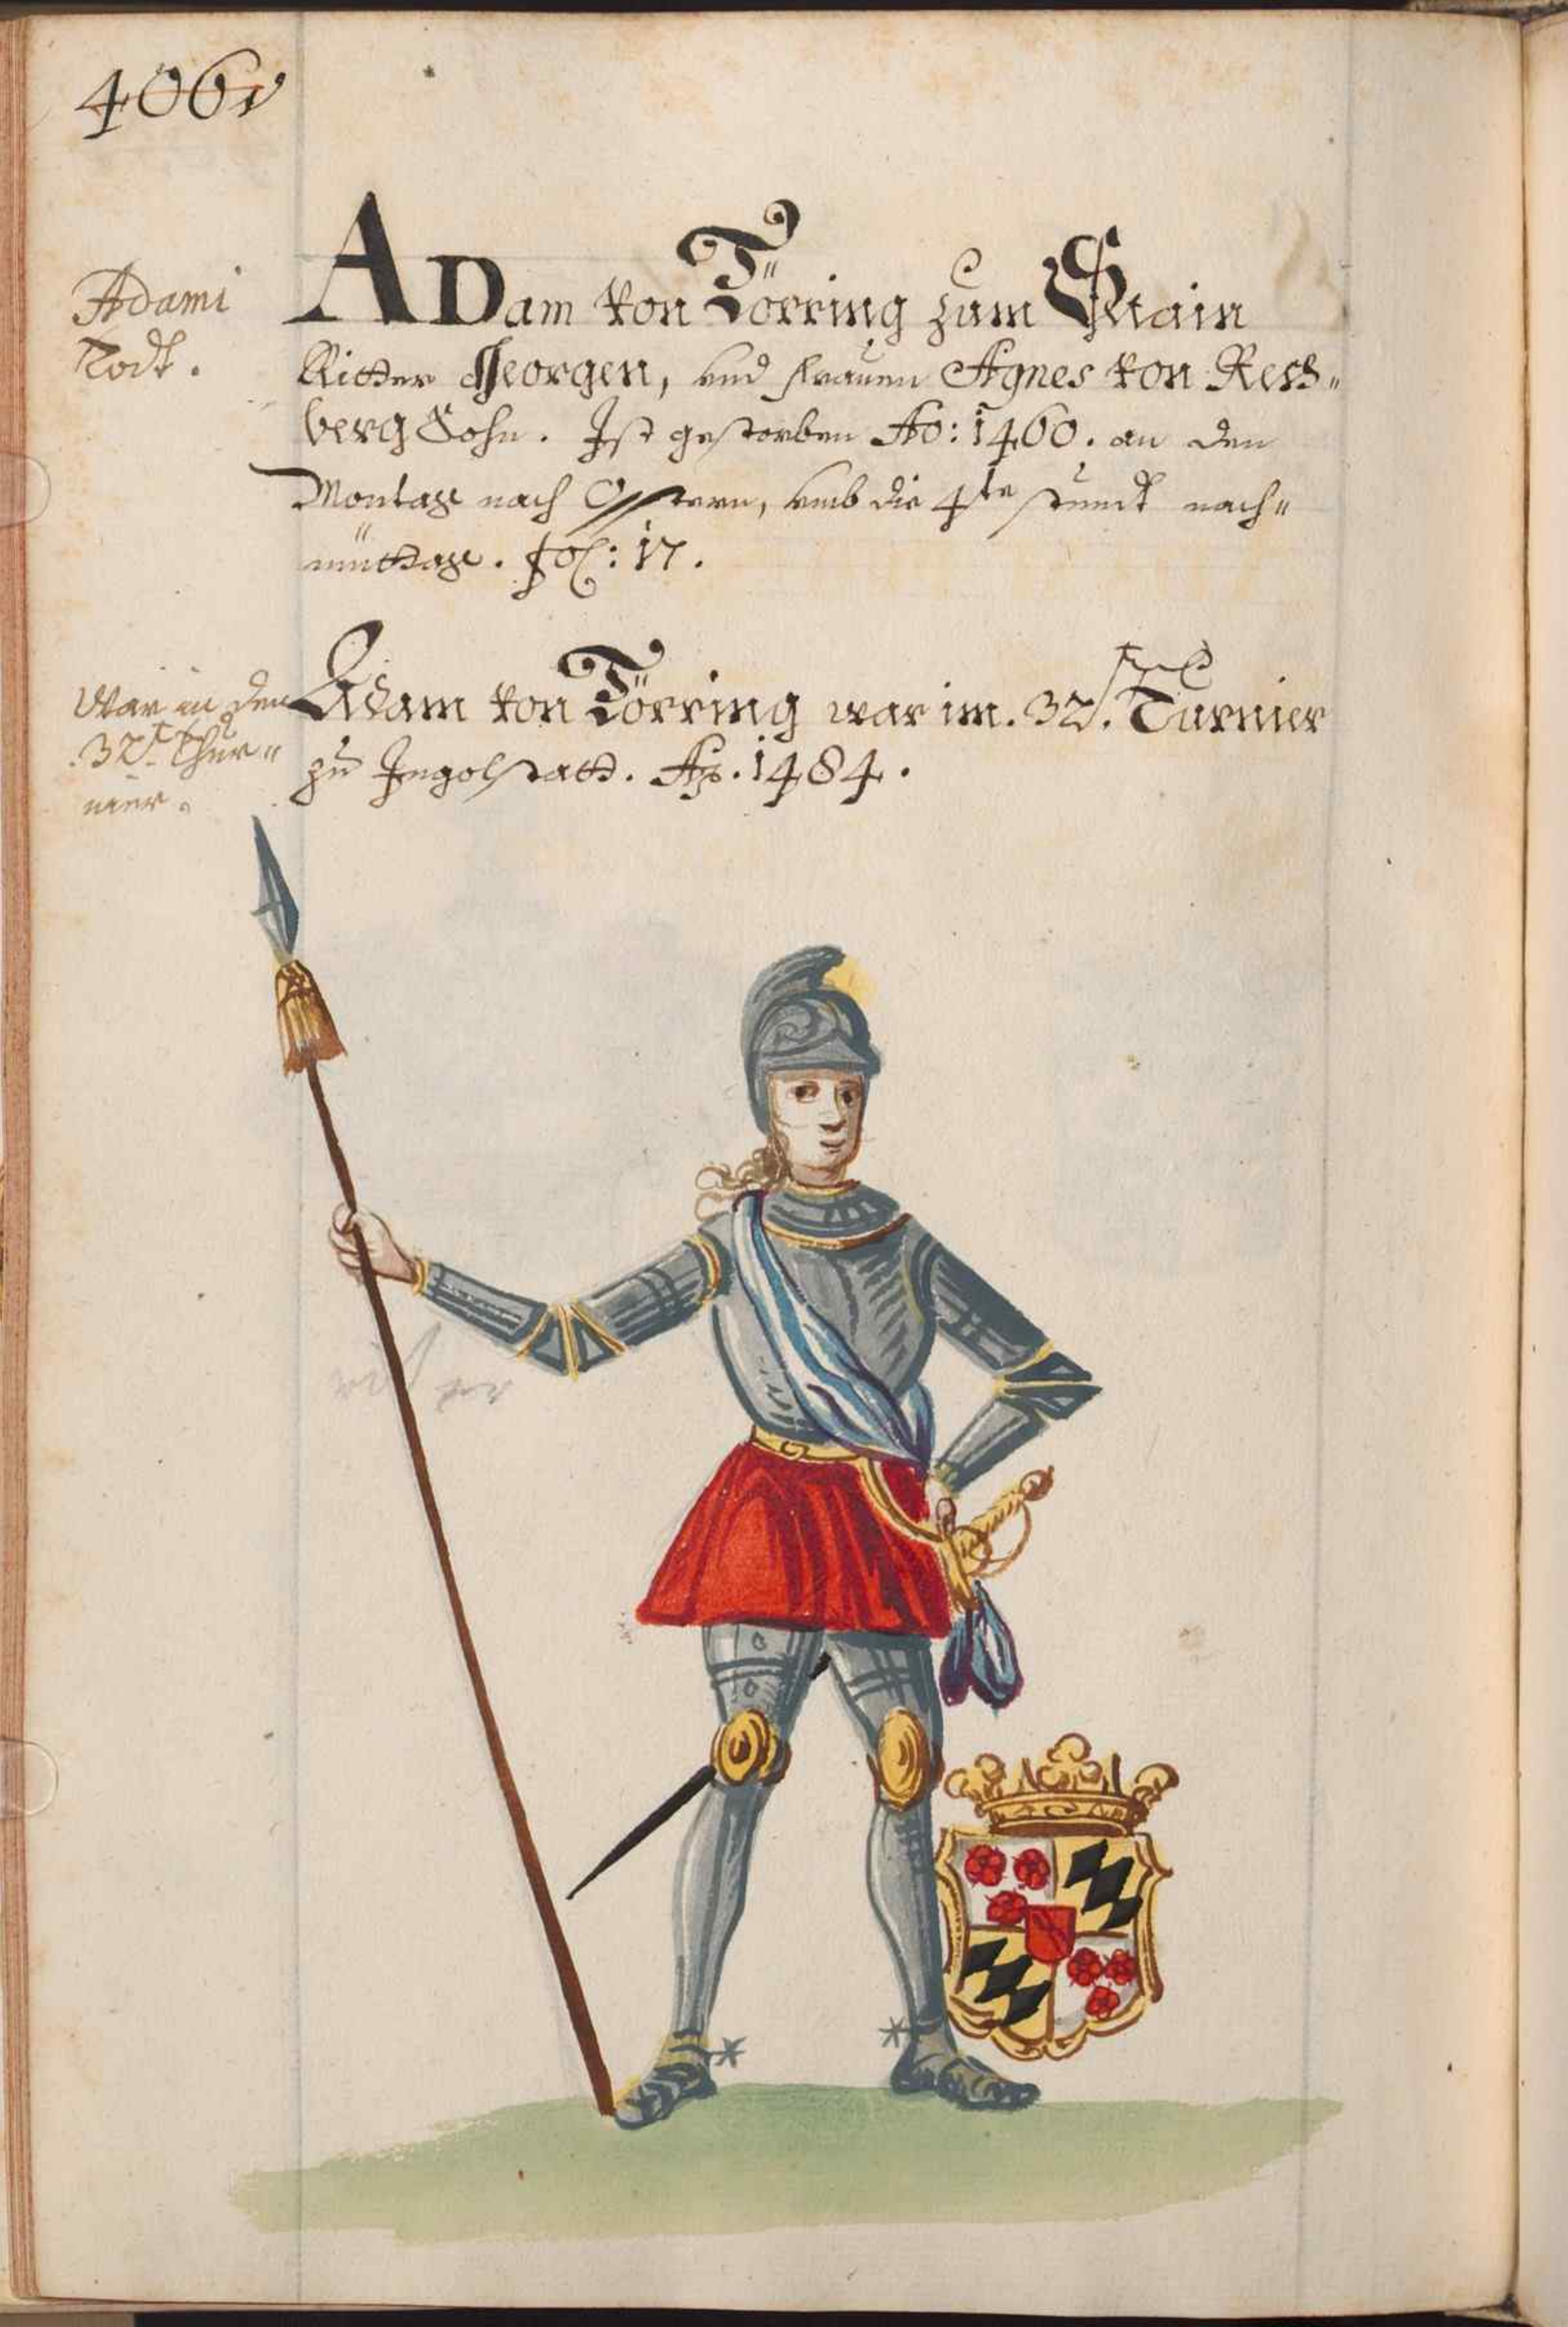 406v
Adami
Todt.
ADam von Törring zum Stain
Ritter Georgen, vnd frauen Agnes von Ress„
berg Sohn. Ist gestorben Ao: 1460. an den
Montag nach Osstern, vmb die 4te stundt nach„
müttag. fol: 17.
War in den
.32st. Thur„
nier.
Adam von Törring war im .32st. Turnier
zu Ingolstatt. Ao. 1484.